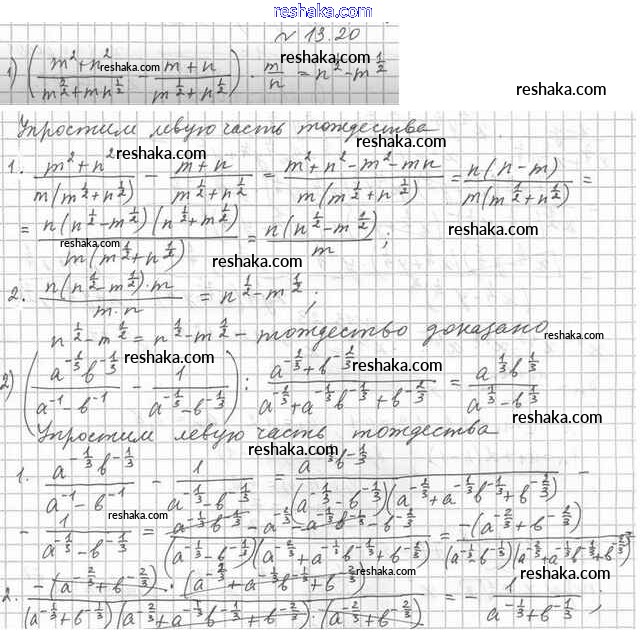 reshaka.ru
№ 13.20
1) ( (m² + n²)/(m^(3/2) + mn^(1/2)) - (m + n)/(m^(1/2) + n^(1/2)) ) · m/n = n^(1/2) - m^(1/2)
Упростим левую часть тождества
1. (m² + n²)/(m(m^(1/2) + n^(1/2))) - (m + n)/(m^(1/2) + n^(1/2)) = (m² + n² - m² - mn)/(m(m^(1/2) + n^(1/2))) = n(n - m)/(m(m^(1/2) + n^(1/2))) =
= n(n^(1/2) - m^(1/2))(n^(1/2) + m^(1/2))/(m(m^(1/2) + n^(1/2))) = n(n^(1/2) - m^(1/2))/m ;
2. n(n^(1/2) - m^(1/2)) · m/(m · n) = n^(1/2) - m^(1/2) ;
n^(1/2) - m^(1/2) = n^(1/2) - m^(1/2) - тождество доказано
2) ( a^(-1/3) b^(-1/3)/(a^(-1) - b^(-1)) - 1/(a^(-1/3) - b^(-1/3)) ) : (a^(-2/3) + b^(-2/3))/(a^(-2/3) + a^(-1/3) b^(-1/3) + b^(-2/3)) = a^(1/3) b^(1/3)/(a^(1/3) - b^(1/3))
Упростим левую часть тождества
1. a^(-1/3) b^(-1/3)/(a^(-1) - b^(-1)) - 1/(a^(-1/3) - b^(-1/3)) = a^(-1/3) b^(-1/3)/((a^(-1/3) - b^(-1/3))(a^(-2/3) + a^(-1/3) b^(-1/3) + b^(-2/3))) -
- 1/(a^(-1/3) - b^(-1/3)) = (a^(-1/3) b^(-1/3) - a^(-2/3) - a^(-1/3) b^(-1/3) - b^(-2/3))/((a^(-1/3) - b^(-1/3))(a^(-2/3) + a^(-1/3) b^(-1/3) + b^(-2/3))) = -(a^(-2/3) + b^(-2/3))/((a^(-1/3) - b^(-1/3))(a^(-2/3) + a^(-1/3) b^(-1/3) + b^(-2/3)))
2. -(a^(-2/3) + b^(-2/3)) · (a^(-2/3) + a^(-1/3) b^(-1/3) + b^(-2/3))/((a^(-1/3) + b^(-1/3))(a^(-2/3) + a^(-1/3) b^(-1/3) + b^(-2/3)) · (a^(-2/3) + b^(-2/3))) = - 1/(a^(-1/3) + b^(-1/3)) ;